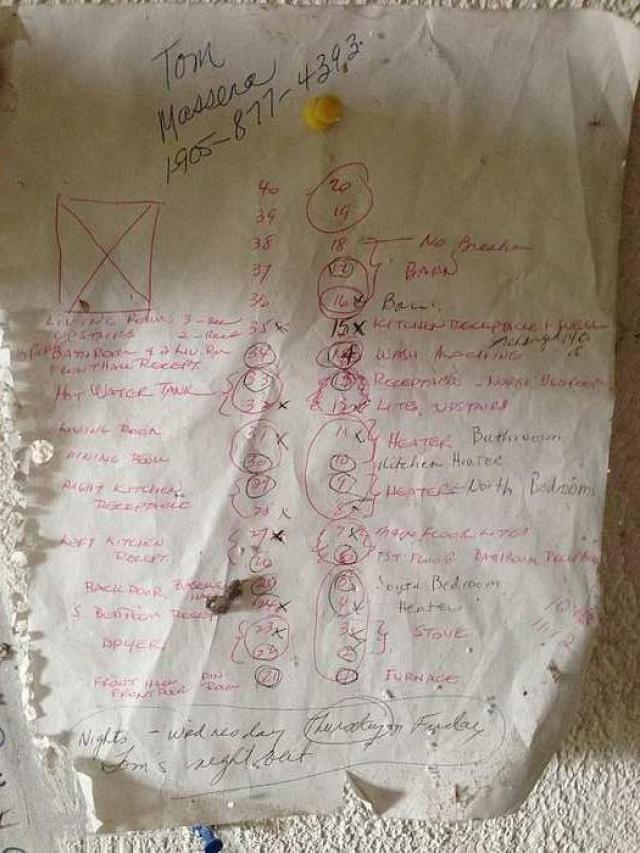 Tom
Massera
1905-877-4393
40 20
39 19
38 18 No Breaker
37 17 BARN
36 16 x Barn
LIVING ROOM 3-
UPSTAIRS 2- 35 x 15 x KITCHEN RECEPTACLE +
BATHROOM & 2 LIV. RM 34 14 WASH MACHING
FRONT HALL RECEPT.
33 13 RECEPTACLE - NORTH BEDROOM
HOT WATER TANK 32 x 12 x LITES, UPSTAIRS
LIVING ROOM 31 x 11 x HEATER Bathroom
DINING ROOM 30 10 Kitchen Heater
RIGHT KITCHEN 29 9 HEATER - North Bedroom
RECEPTACLE 28 x 8 x
LEFT KITCHEN 27 x 7 x MAIN FLOOR LITES
RECEPT. 26 6 1ST FLOOR BATHROOM
BACK DOOR, 25 5 South Bedroom
24 x 4 x Heater
DRYER 23 x 3 x STOVE
22 2
FRONT HALL DIN. 21 1 FURNACE
FRONT DOOR ROOM
Nights - Wednesday Thursday Friday
Tom's night out